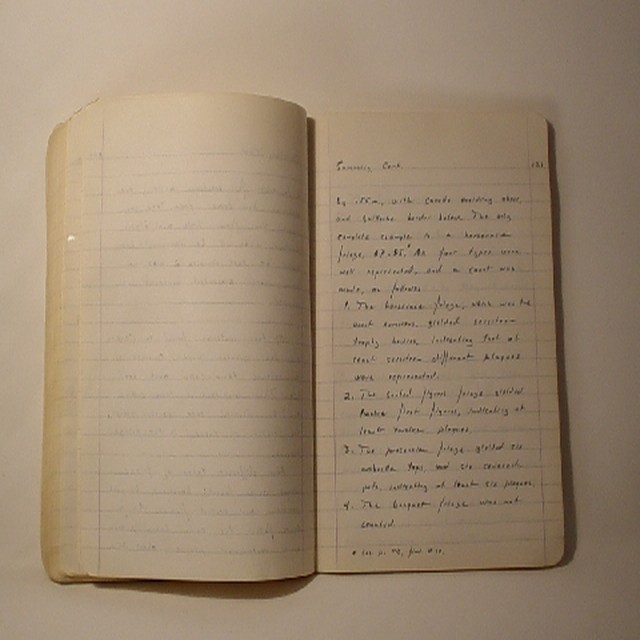 Summary Cont. 131
by .55 m, with cavetto moulding above,
and guilloche border below. The only
complete example is a horserace
frieze, 87-85.* All four types were
well represented, and a count was
made, as follows:
1. The horserace frieze, which was the
most numerous, yielded seventeen
trophy bearers, indicating that at
least seventeen different plaques
were represented.
2. The seated figures frieze yielded
twelve first figures, indicating at
least twelve plaques.
3. The procession frieze yielded six
umbrella tops, and six covered
pots, indicating at least six plaques.
4. The banquet frieze was not
counted.
* see p.